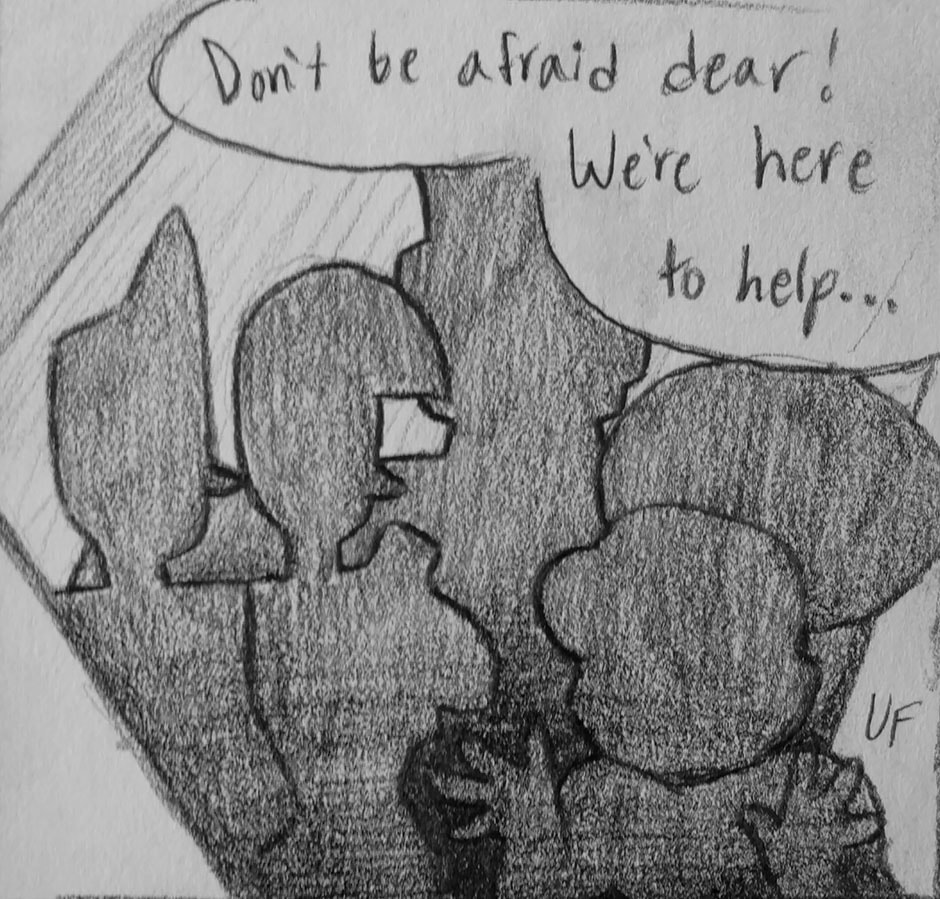 Don't be afraid dear!
We're here
to help...
UF